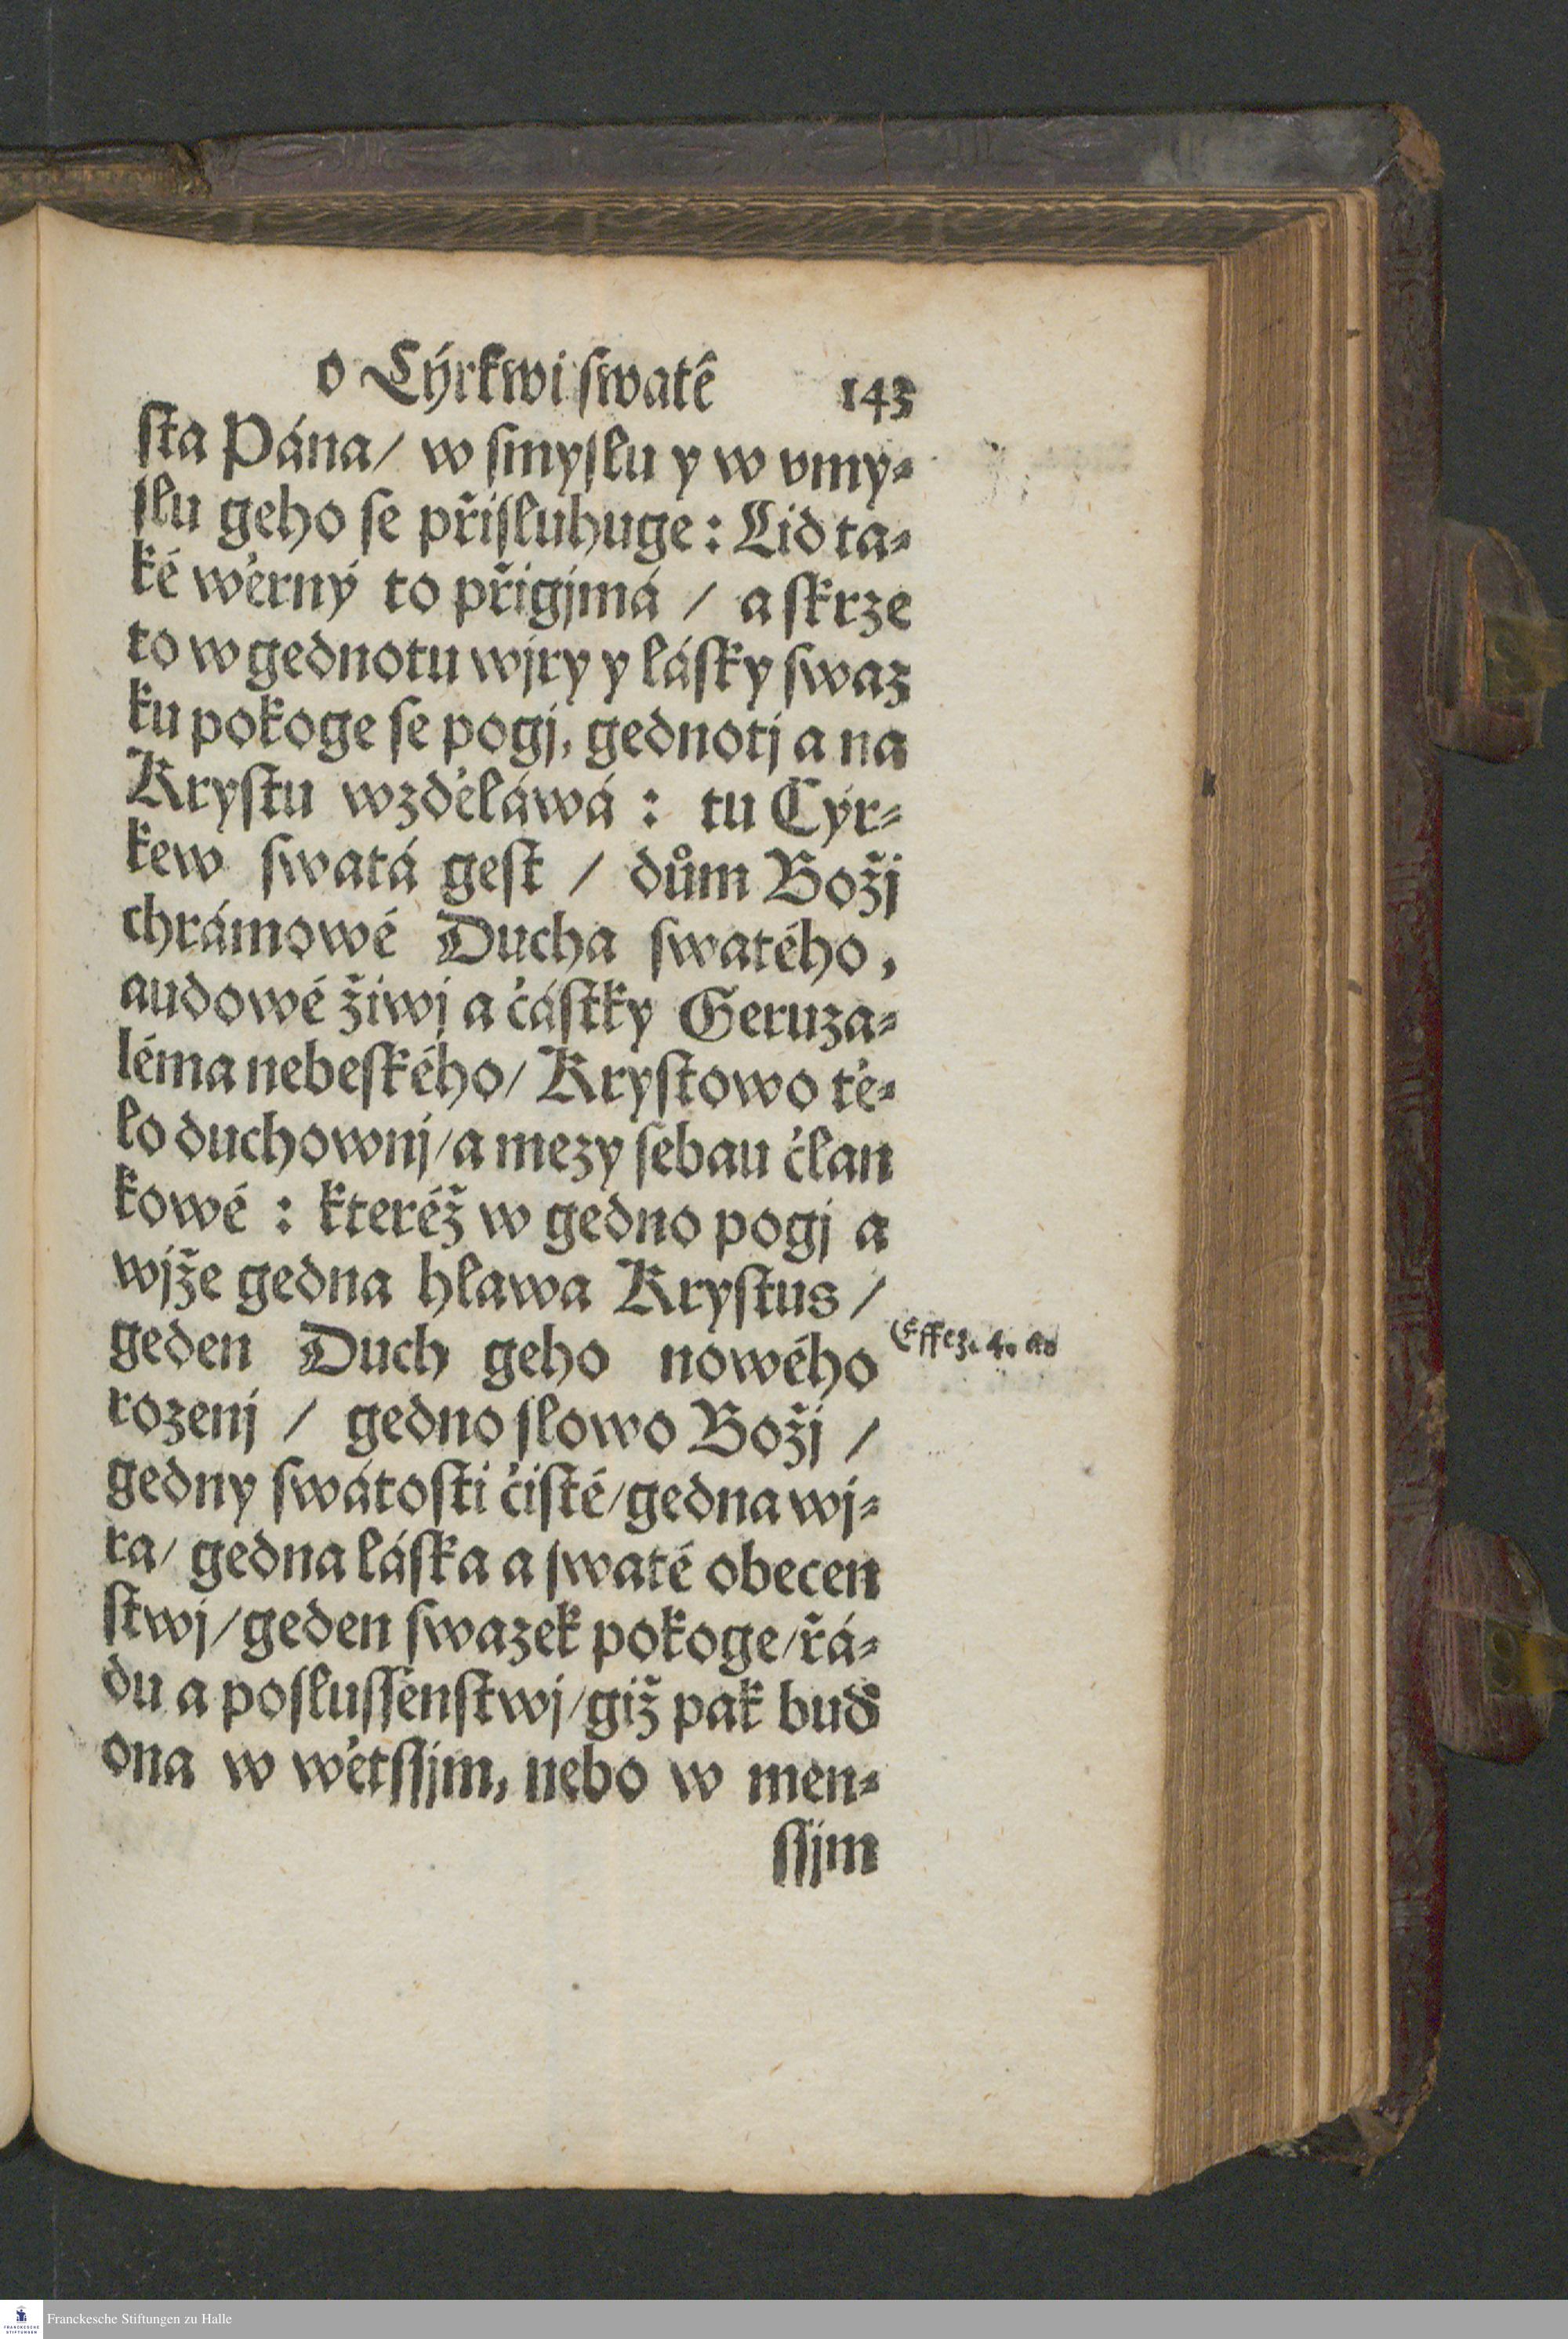 o Cýrkwi ſwaté 143
ſta Pána/ w ſmyſlu y w vmy⸗
ſlu geho ſe přiſluhuge: Lid ta⸗
ké wěrný to přigjmá / a ſkrze
to w gednotu wjry y láſky ſwaz
ku pokoge ſe pogj, gednotj a na
Kryſtu wzděláwá : tu Cýr⸗
kew ſwatá geſt / dům Božj
chrámowé Ducha ſwatého,
audowé žiwj a částky Geruza⸗
léma nebeſkého/ Kryſtowo tě⸗
lo duchownj/a mezy ſebau član
kowé : kteréž w gedno pogj a
wjže gedna hlawa Kryſtus /
geden Duch geho nowého
Effez. 4. a.
rozenj / gedno ſlowo Božj /
gedny ſwátoſti čiſté/gedna wj⸗
ra/ gedna láſka a ſwaté obecen
ſtwj/geden ſwazek pokoge/řá⸗
du a poſluſſenſtwj/giž pak buď
ona w wětſſjm, nebo w men⸗
ſſjm
Franckesche Stiftungen zu Halle
FRANCKESCHE
STIFTUNGEN